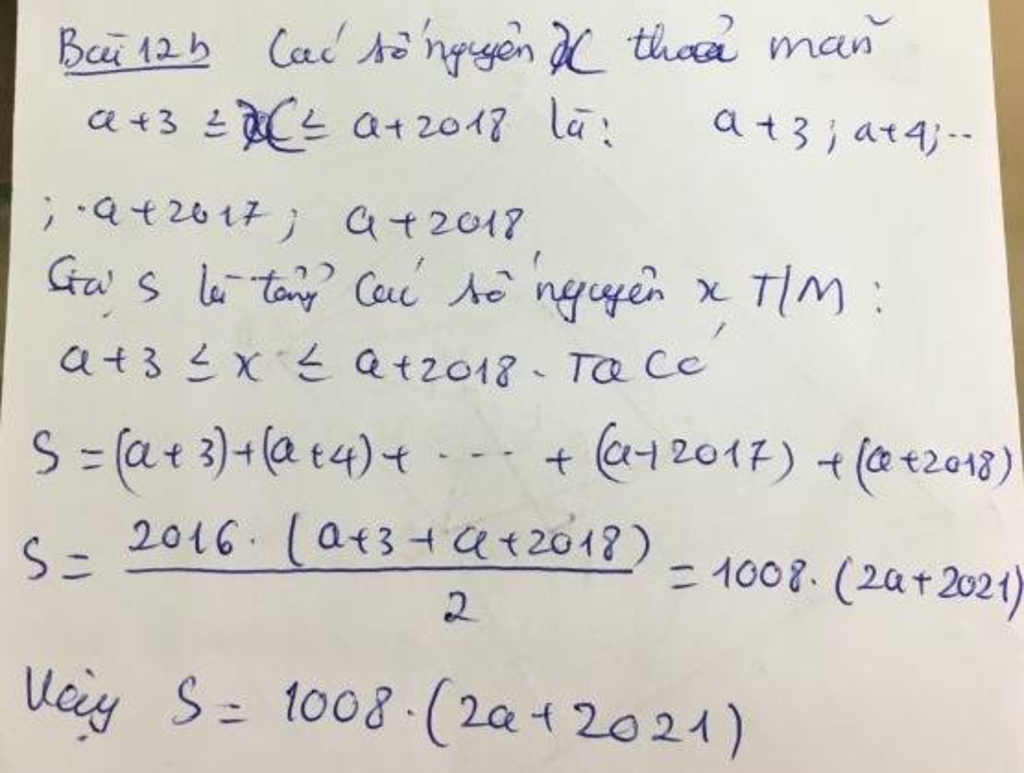 Bài 12b Các số nguyên x thoả mãn
a+3 ≤ x ≤ a+2018 là: a+3; a+4; ..
; .a+2017; a+2018
Gọi S là tổng các số nguyên x T/M:
a+3 ≤ x ≤ a+2018. Ta có
S = (a+3)+(a+4)+ .... + (a+2017) + (a+2018)
S = 2016. (a+3+a+2018) / 2 = 1008. (2a+2021)
Vậy S = 1008.(2a+2021)